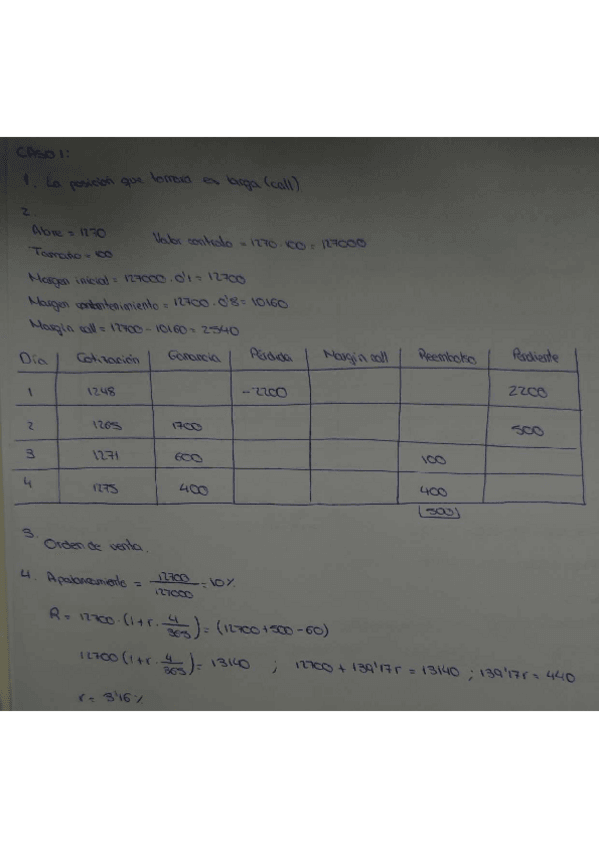 CASO 1:
1. La posición que tomas es larga (call)
2.
Abre = 1270
Valor contrato = 1270 · 100 = 127000
Tamaño = 100
Margen inicial = 127000 · 0'1 = 12700
Margen mantenimiento = 12700 · 0'8 = 10160
Margin call = 12700 - 10160 = 2540
Día Cotización Ganancia Pérdida Margin call Reembolso Pendiente
1 1248 -2200 2200
2 1265 1700 500
3 1271 600 100
4 1275 400 400
(500)
3. Orden de venta.
4. Apalancamiento = 12700 / 127000 = 10%
R = 12700 · (1 + r · 4/365) = (12700 + 500 - 60)
12700 (1 + r · 4/365) = 13140 ; 12700 + 139'17r = 13140 ; 139'17r = 440
r = 3'16 %